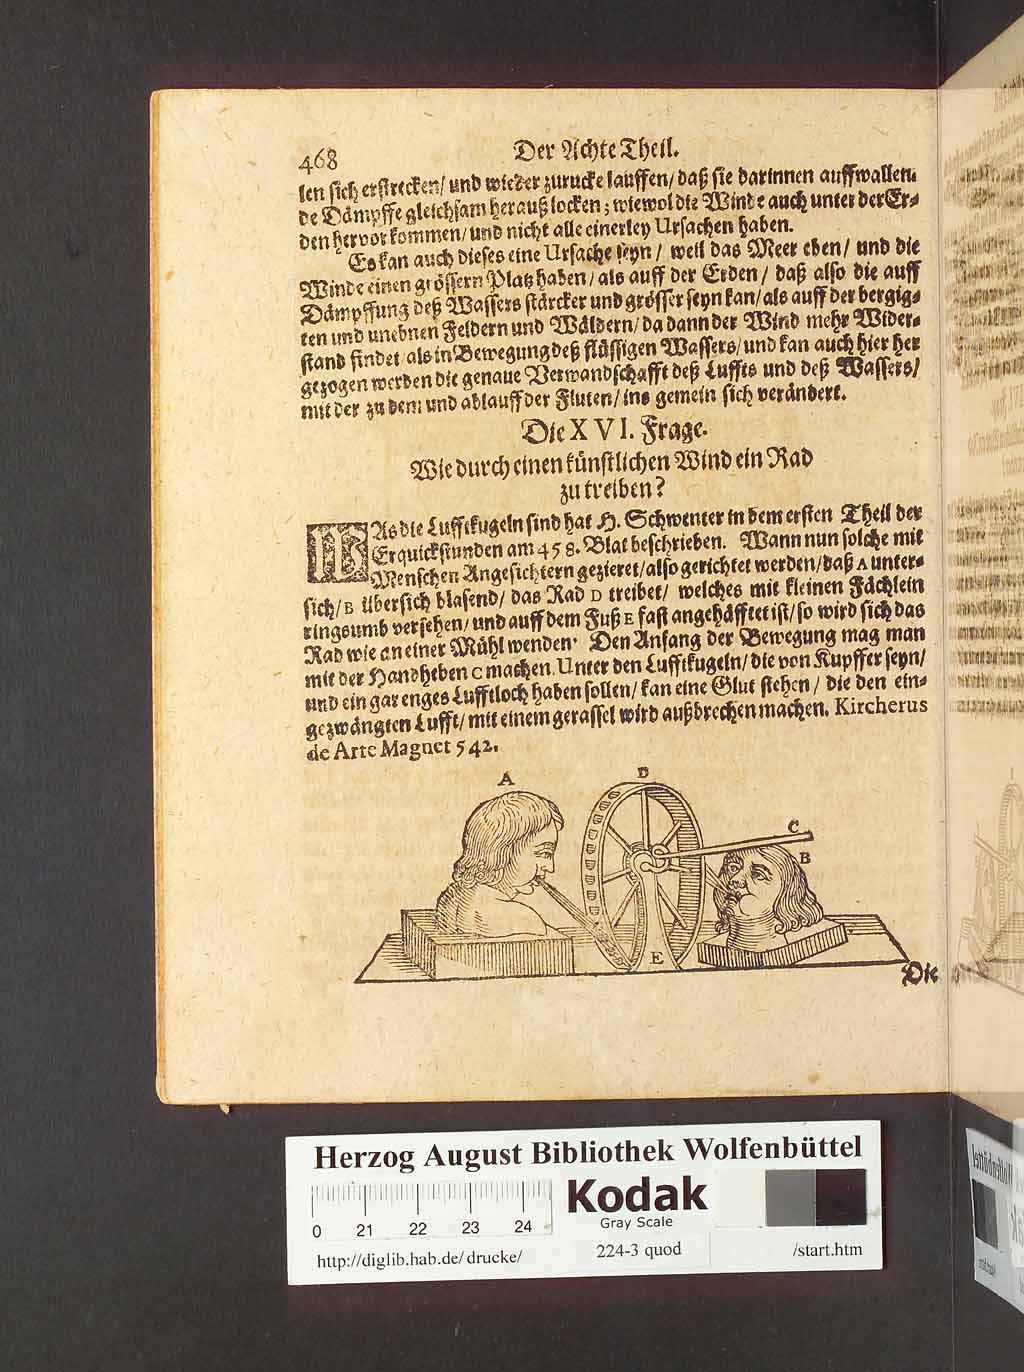 468 Der Achte Theil.
len sich erstrecken/ und wieder zurucke lauffen/ daß sie darinnen auffwallen-
de Dämpffe gleichsam herauß locken; wiewol die Winde auch unter der Er-
den hervor kommen/ und nicht alle einerley Ursachen haben.
Es kan auch dieses eine Ursache seyn/ weil das Meer eben/ und die
Winde einen grössern Platz haben/ als auff der Erden/ daß also die auff
Dämpffung deß Wassers stärcker und grösser seyn kan/ als auff der bergig-
ten und unebnen Feldern und Wäldern/ da dann der Wind mehr Wider-
stand findet als in Bewegung deß flüssigen Wassers/ und kan auch hier her
gezogen werden die genaue Verwandschafft deß Luffts und deß Wassers/
mit der zu dem und ablauff der Fluten/ ins gemein sich verändert.
Die XVI. Frage.
Wie durch einen künstlichen Wind ein Rad
zu treiben?
WAs die Lufftkugeln sind hat H. Schwenter in dem ersten Theil der
Erquickstunden am 458. Blat beschrieben. Wann nun solche mit
Menschen Angesichtern gezieret/ also gerichtet werden/ daß A unter-
sich/ B übersich blasend/ das Rad D treibet/ welches mit kleinen Fächlein
ringsumb versehen/ und auff dem Fuß E fast angehäfftet ist/ so wird sich das
Rad wie an einer Mühl wenden. Den Anfang der Bewegung mag man
mit der Handheben C machen. Unter den Lufftkugeln/ die von Kupffer seyn/
und ein gar enges Lufftloch haben sollen/ kan eine Glut stehen/ die den ein-
gezwängten Lufft/ mit einem gerassel wird außbrechen machen. Kircherus
de Arte Magnet 542.
A
D
C
B
E
Die
Herzog August Bibliothek Wolfenbüttel
0 21 22 23 24
Kodak
Gray Scale
http://diglib.hab.de/drucke/ 224-3 quod /start.htm